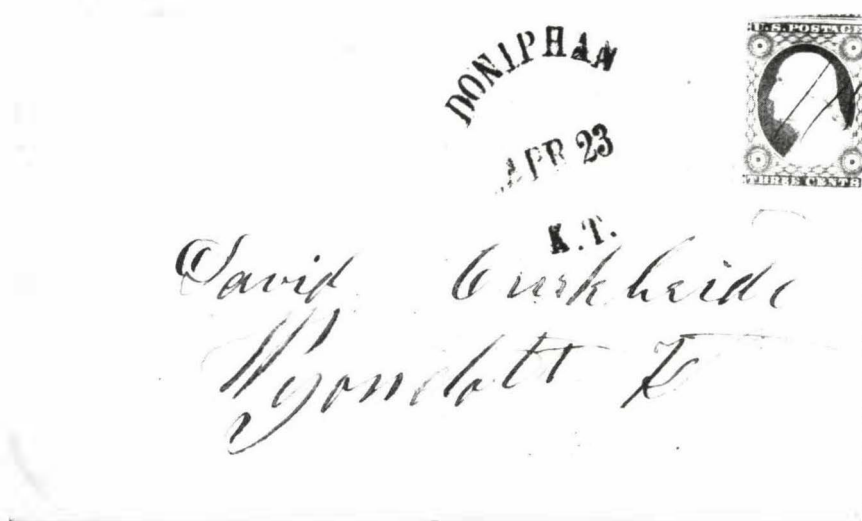 DONIPHAN
APR 23
K.T.
U.S. POSTAGE
THREE CENTS
David
Wyondott K